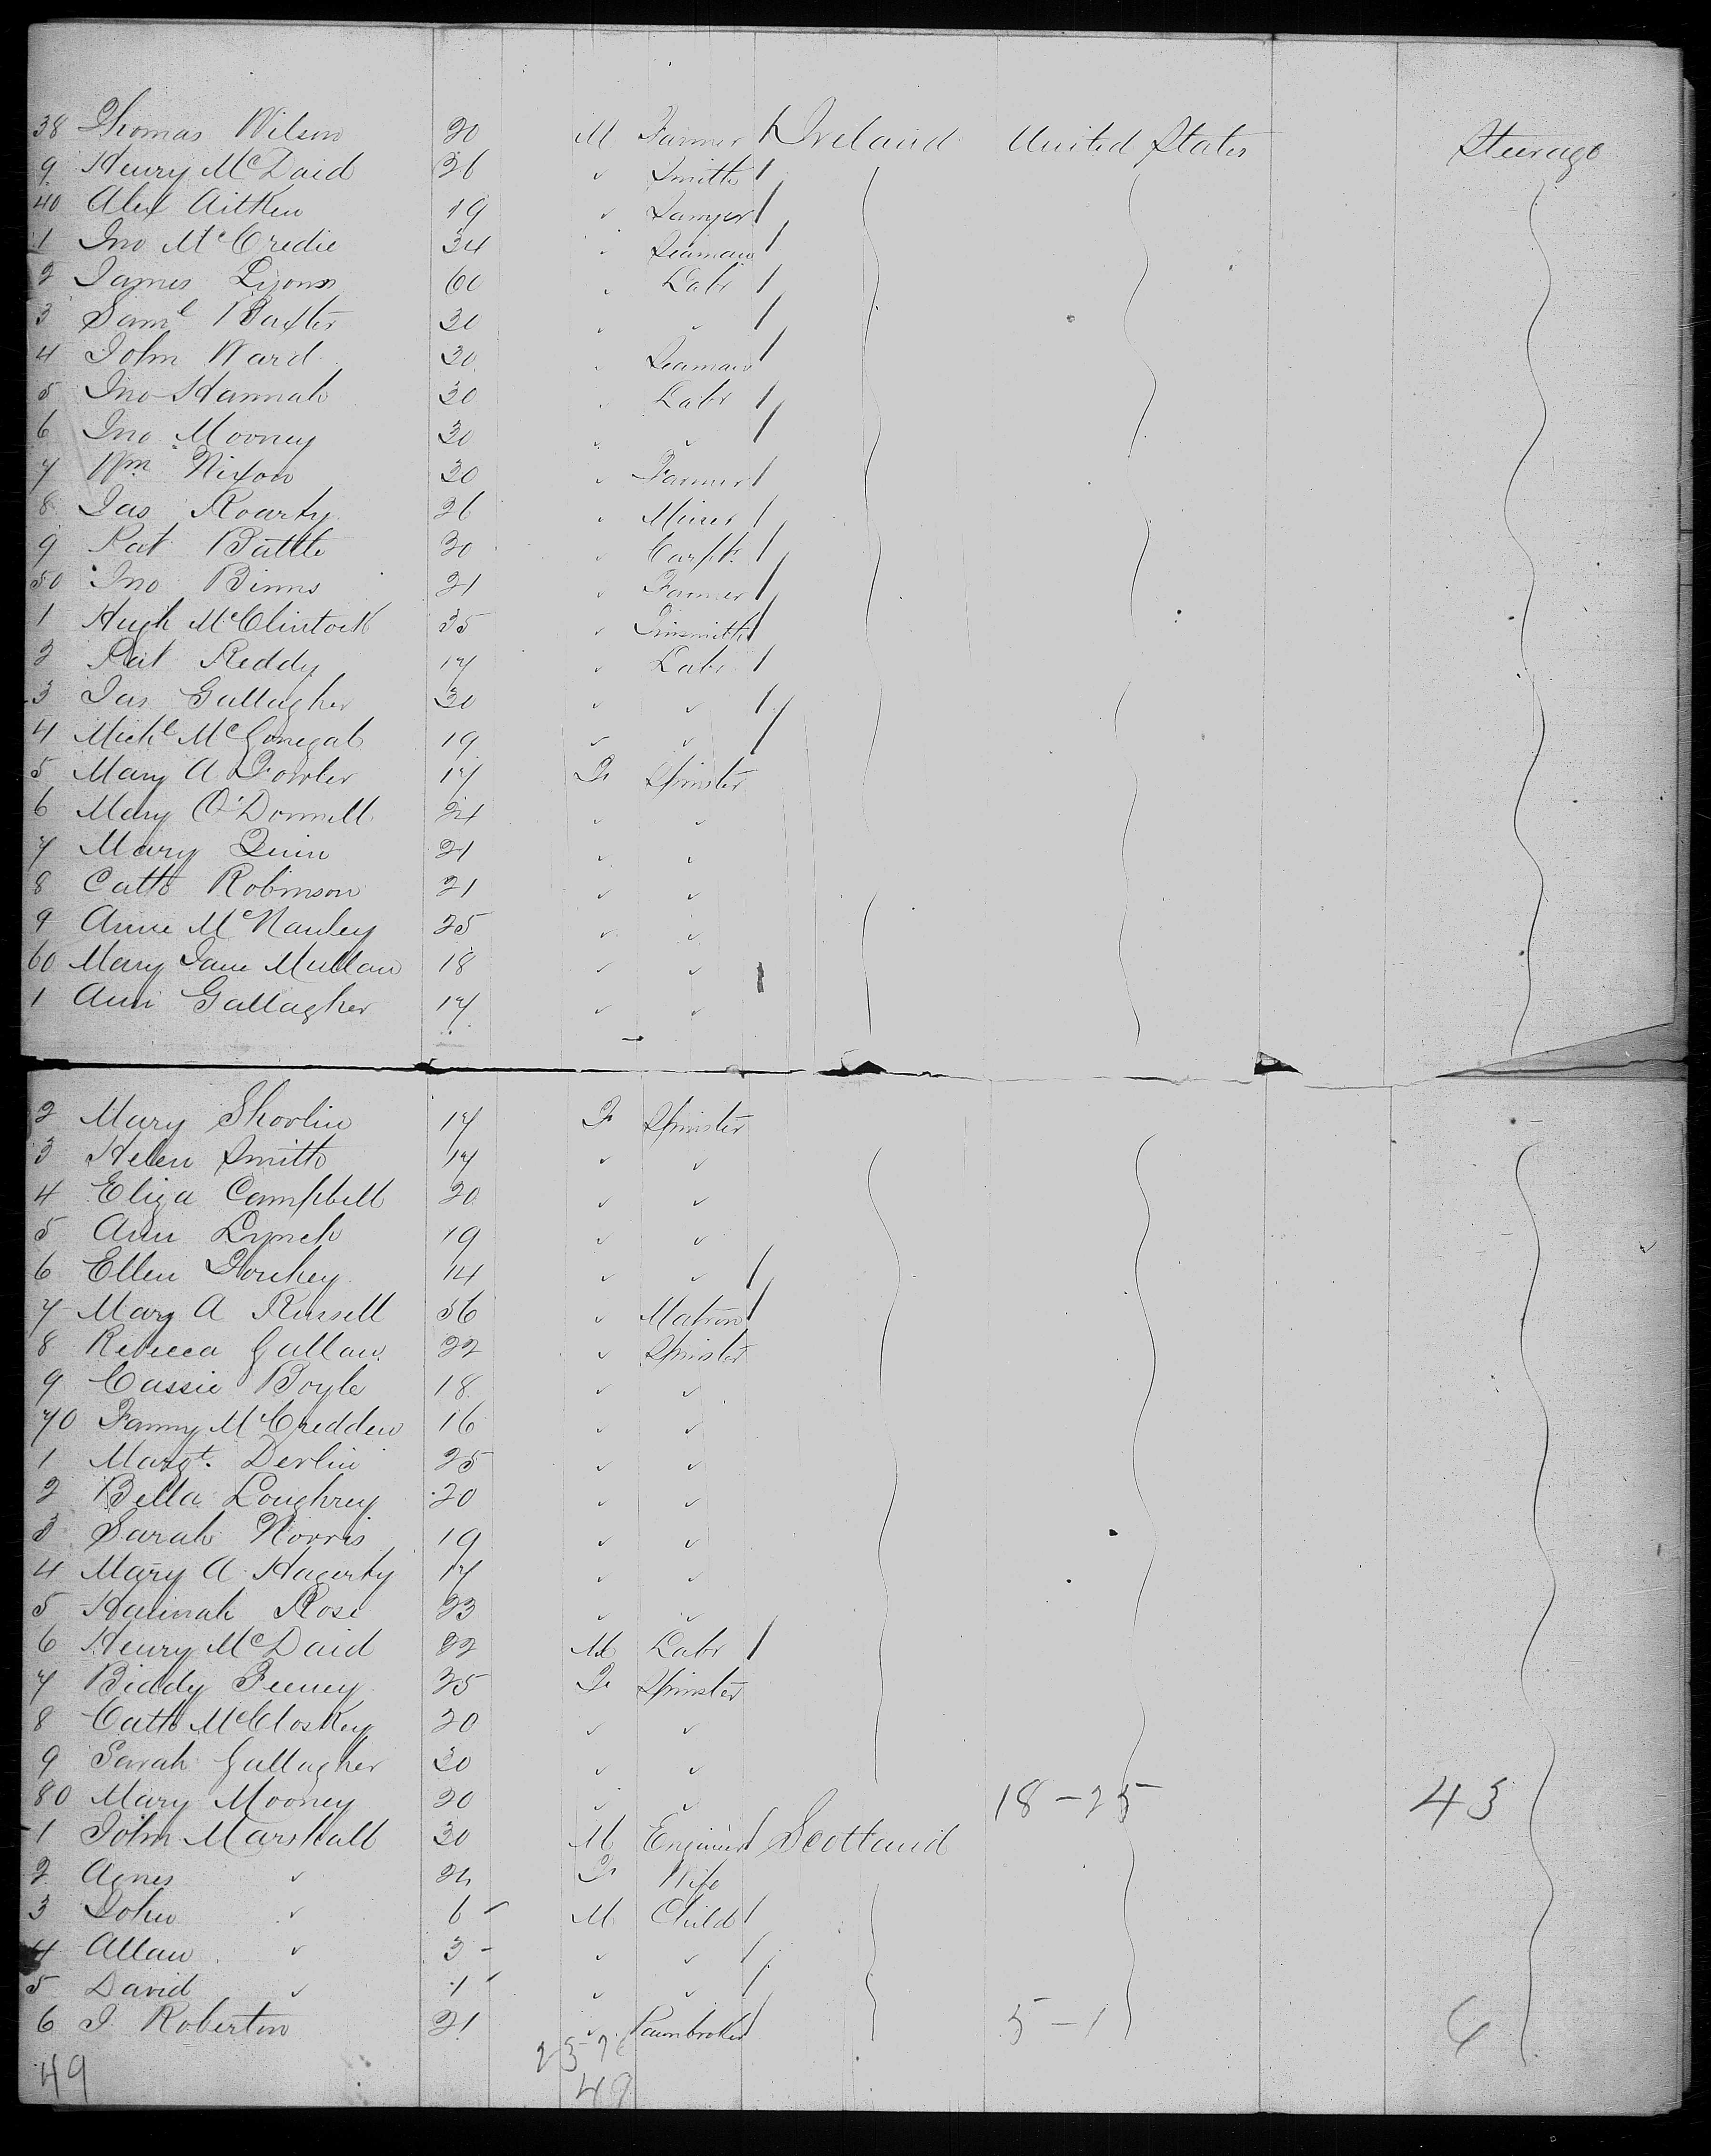 38 Thomas Wilson 20 M Farmer Ireland United States Steerage
9 Henry McDaid 26 " Smith
40 Alex Aitken 19 " Sawyer
1 Jno McCredie 34 " Seaman
2 James Lyons 60 " Labr
3 Saml Baxter 30 " "
4 John Ward 30 " Seaman
5 Jno Hannah 30 " Labr
6 Jno Mooney 30 " "
7 Wm Nixon 30 " Farmer
8 Jas Roarty 26 " Miner
9 Pat Battle 30 " Carptr
50 Jno Binns 21 " Farmer
1 Hugh McClintock 35 " Tinsmith
2 Pat Reddy 17 " Labr
3 Jas Gallagher 30 " "
4 Michl McGonegal 19 " "
5 Mary A Fowler 17 F Spinster
6 Mary O'Donnell 24 " "
7 Mary Quin 21 " "
8 Cath Robinson 21 " "
9 Anne McNauley 25 " "
60 Mary Jane Mullan 18 " "
1 Ann Gallagher 17 " "
2 Mary Shovlin 17 F Spinster
3 Helen Smith 17 " "
4 Eliza Campbell 20 " "
5 Ann Lynch 19 " "
6 Ellen 14 " "
7 Mary A Kinsell 56 " Matron
8 Rebecca Gallan 22 " Spinster
9 Cassie Boyle 18 " "
70 Fanny McCredden 16 " "
1 Margt. Devlin 25 " "
2 Bella Loughrey 20 " "
3 Sarah Norris 19 " "
4 Mary A Hagerty 17 " "
5 Hannah Rose 23 " "
6 Henry McDaid 22 M Labr
7 Biddy Feeney 25 F Spinster
8 Cath McCloskey 20 " "
9 Sarah Gallagher 20 " "
80 Mary Mooney 20 " " 18-25 43
1 John Marshall 30 M Engineer Scotland
2 Agnes " F Wife
3 John " 6 M Child
4 Allan " 3 " "
5 David " 1 " "
6 J. Roberton 21 " Pawnbroker 5-1 6
49 23-26
49